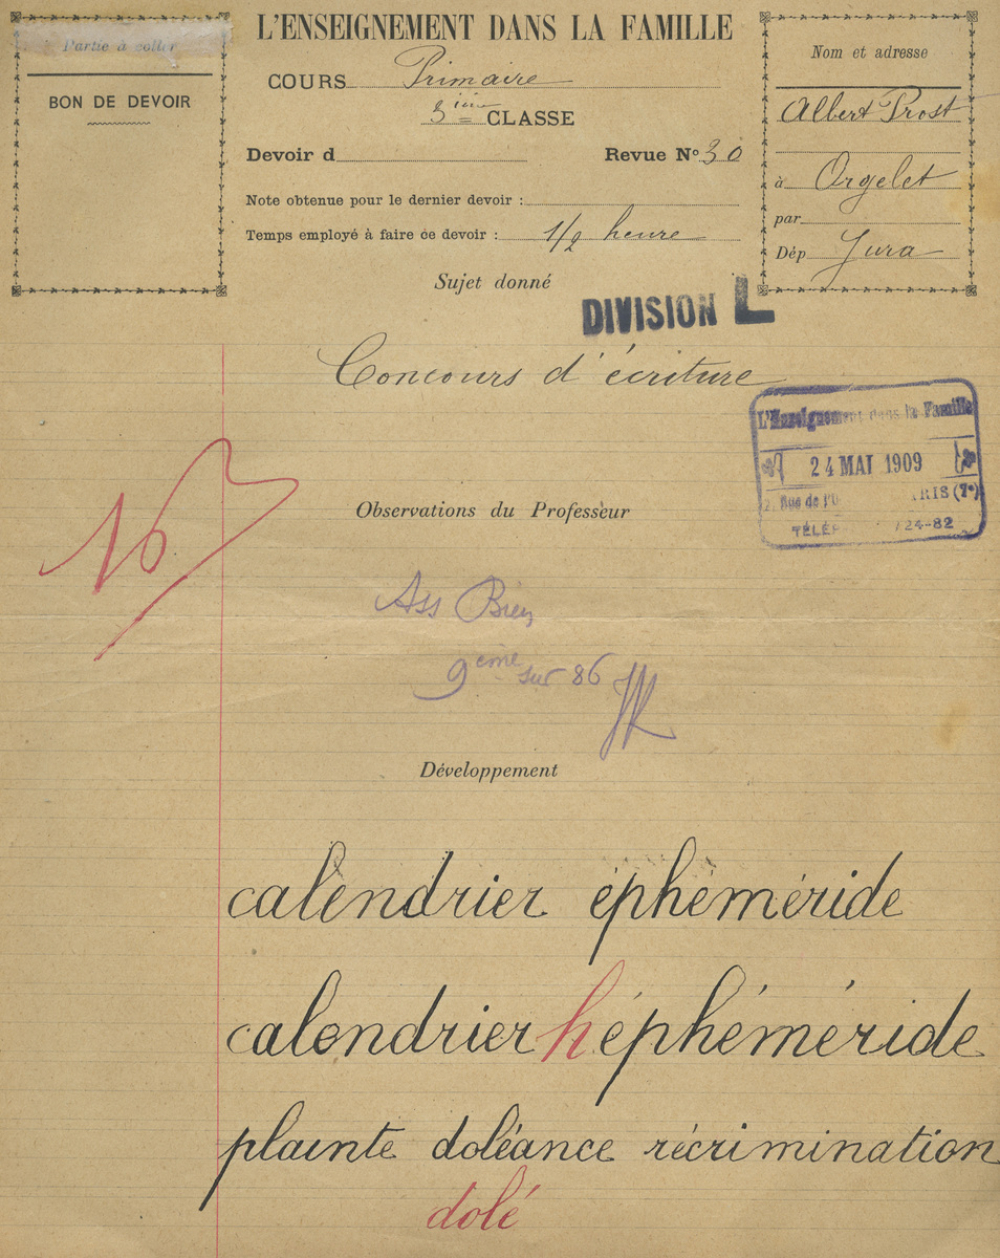 Partie à coller
BON DE DEVOIR
L'ENSEIGNEMENT DANS LA FAMILLE
COURS Primaire
3ième CLASSE
Devoir d
Revue Nº 30
Note obtenue pour le dernier devoir :
Temps employé à faire ce devoir : 1/2 heure
Sujet donné
Nom et adresse
Albert Prost
à Orgelet
par
Dép Jura
DIVISION L
Concours d'écriture
L'Enseignement dans la Famille
24 MAI 1909
2, Rue de l'O RIS (7e)
TÉLÉP 724-82
16
Observations du Professeur
Ass Bien
9eme sur 86
Développement
calendrier éphéméride
calendrier h éphéméride
plainte doléance récrimination
dolé